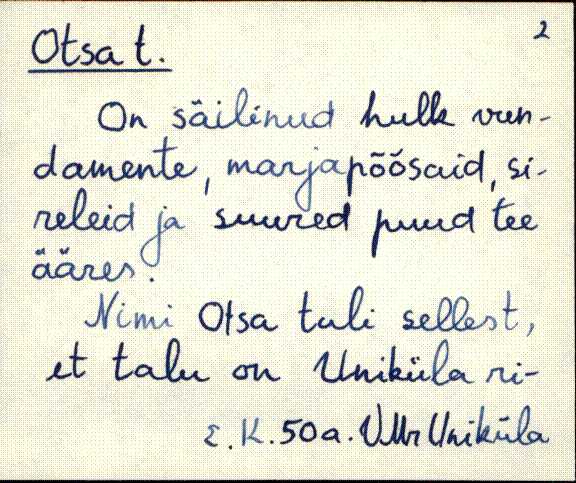 2
Otsa t.
On säilinud hulk vun-
damente, marjapõõsaid, si-
releid ja suured puud tee
ääres.
Nimi Otsa tuli sellest,
et talu on Uniküla ri-
E.K. 50a. VMr Uniküla